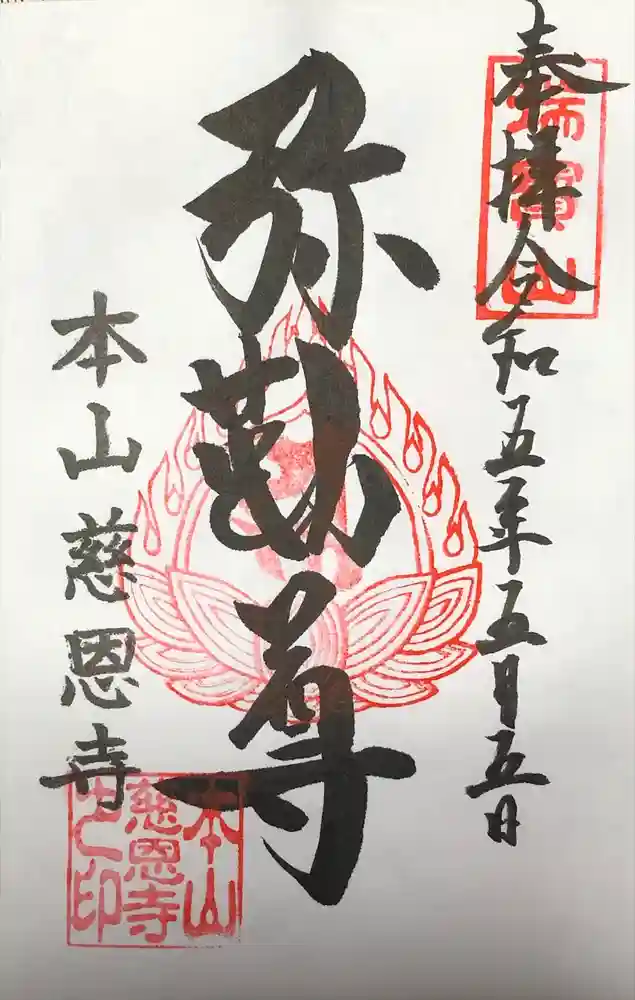 奉拝 令和五年五月五日
瑞寳山
弥勒尊
本山慈恩寺
本山
慈恩寺
之印